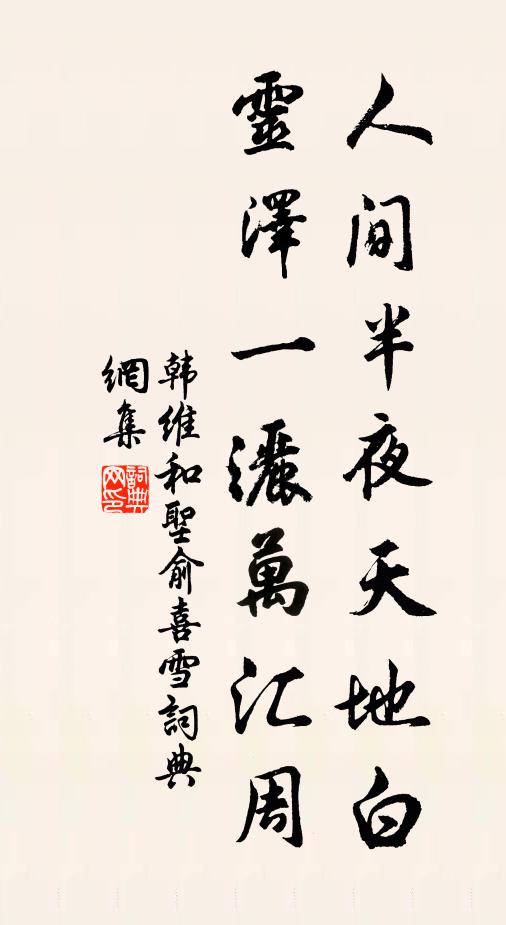 人间半夜天地白
靈澤一灑萬汇周
韩维和聖俞喜雪詞典
網集
詞典
网印